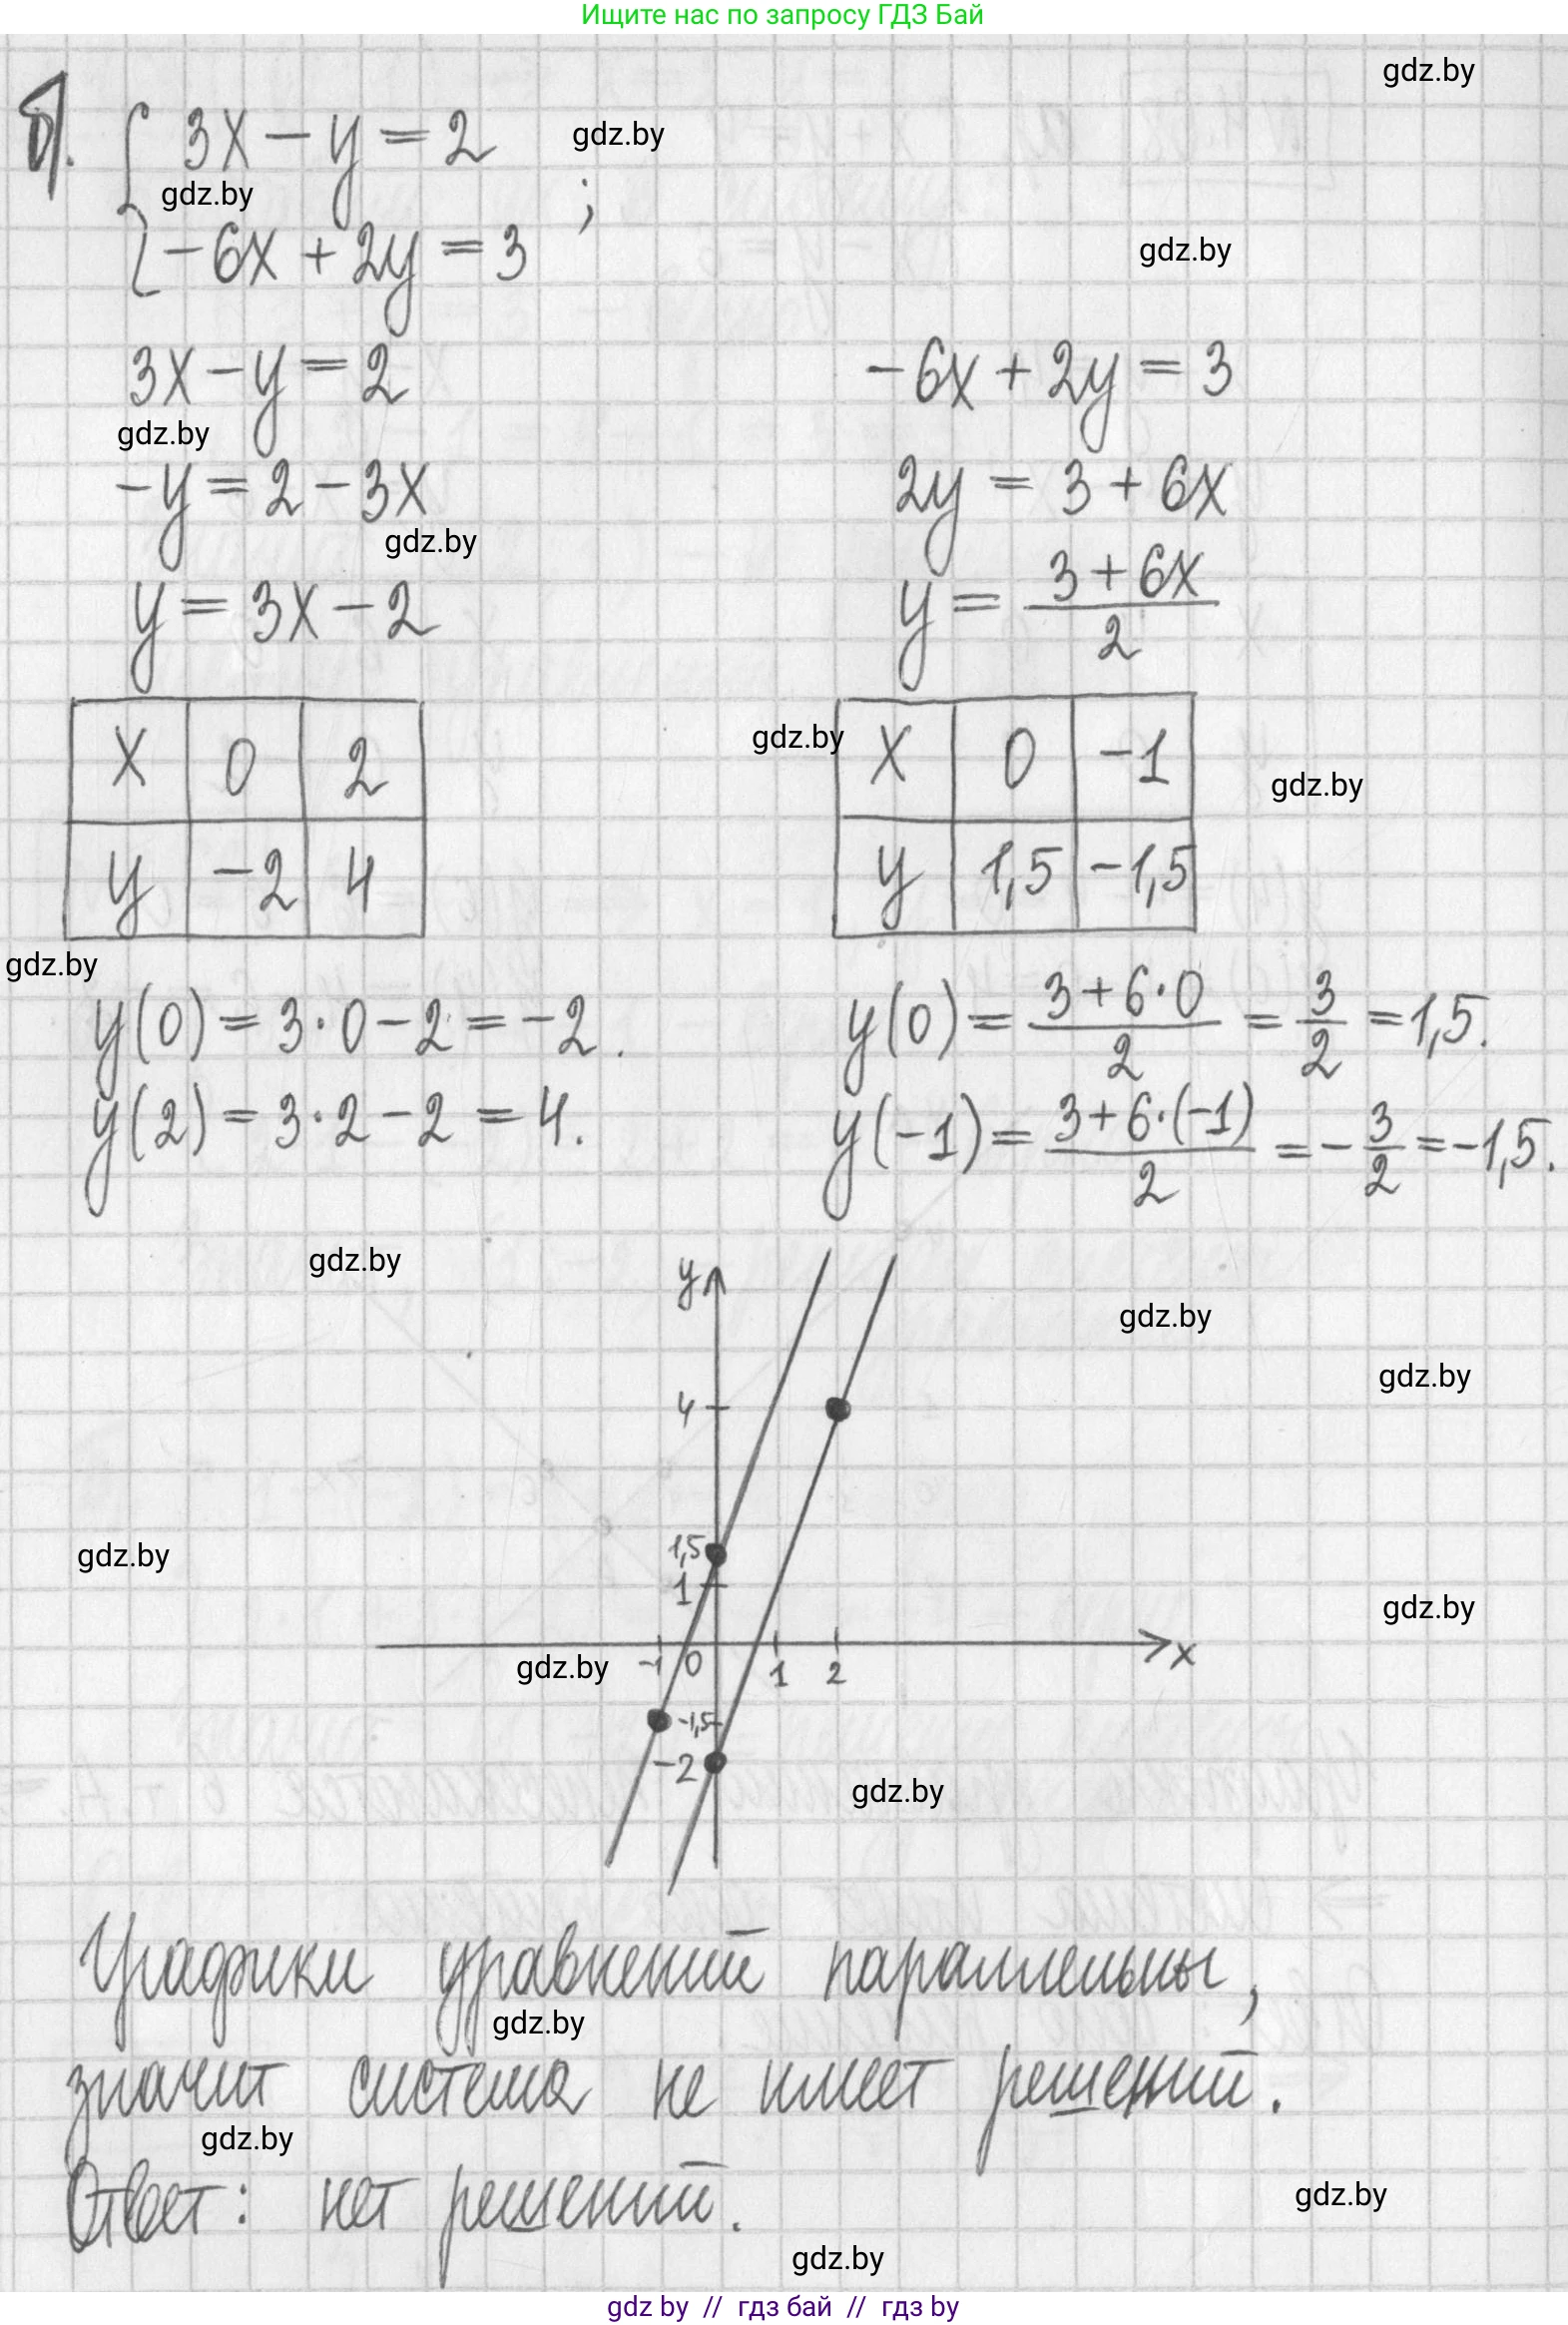 Ищите нас по запросу ГДЗ Бай
gdz.by
б). { 3x - y = 2
gdz.by
gdz.by
;
{ -6x + 2y = 3
gdz.by
3x - y = 2
-6x + 2y = 3
gdz.by
-y = 2 - 3x
2y = 3 + 6x
gdz.by
y = 3x - 2
y = (3 + 6x)/2
x 0 2
gdz.by
x 0 -1
gdz.by
y -2 4
y 1,5 -1,5
gdz.by
y(0) = 3·0 - 2 = -2.
y(0) = (3+6·0)/2 = 3/2 = 1,5.
y(2) = 3·2 - 2 = 4.
y(-1) = (3+6·(-1))/2 = -3/2 = -1,5.
gdz.by
y
gdz.by
gdz.by
4
1,5
gdz.by
1
gdz.by
gdz.by
-1 0 1 2 x
-1,5
-2
gdz.by
Графики уравнений параллельны,
gdz.by
значит система не имеет решений.
gdz.by
Ответ: нет решений.
gdz.by
gdz.by
gdz by // гдз бай // гдз by